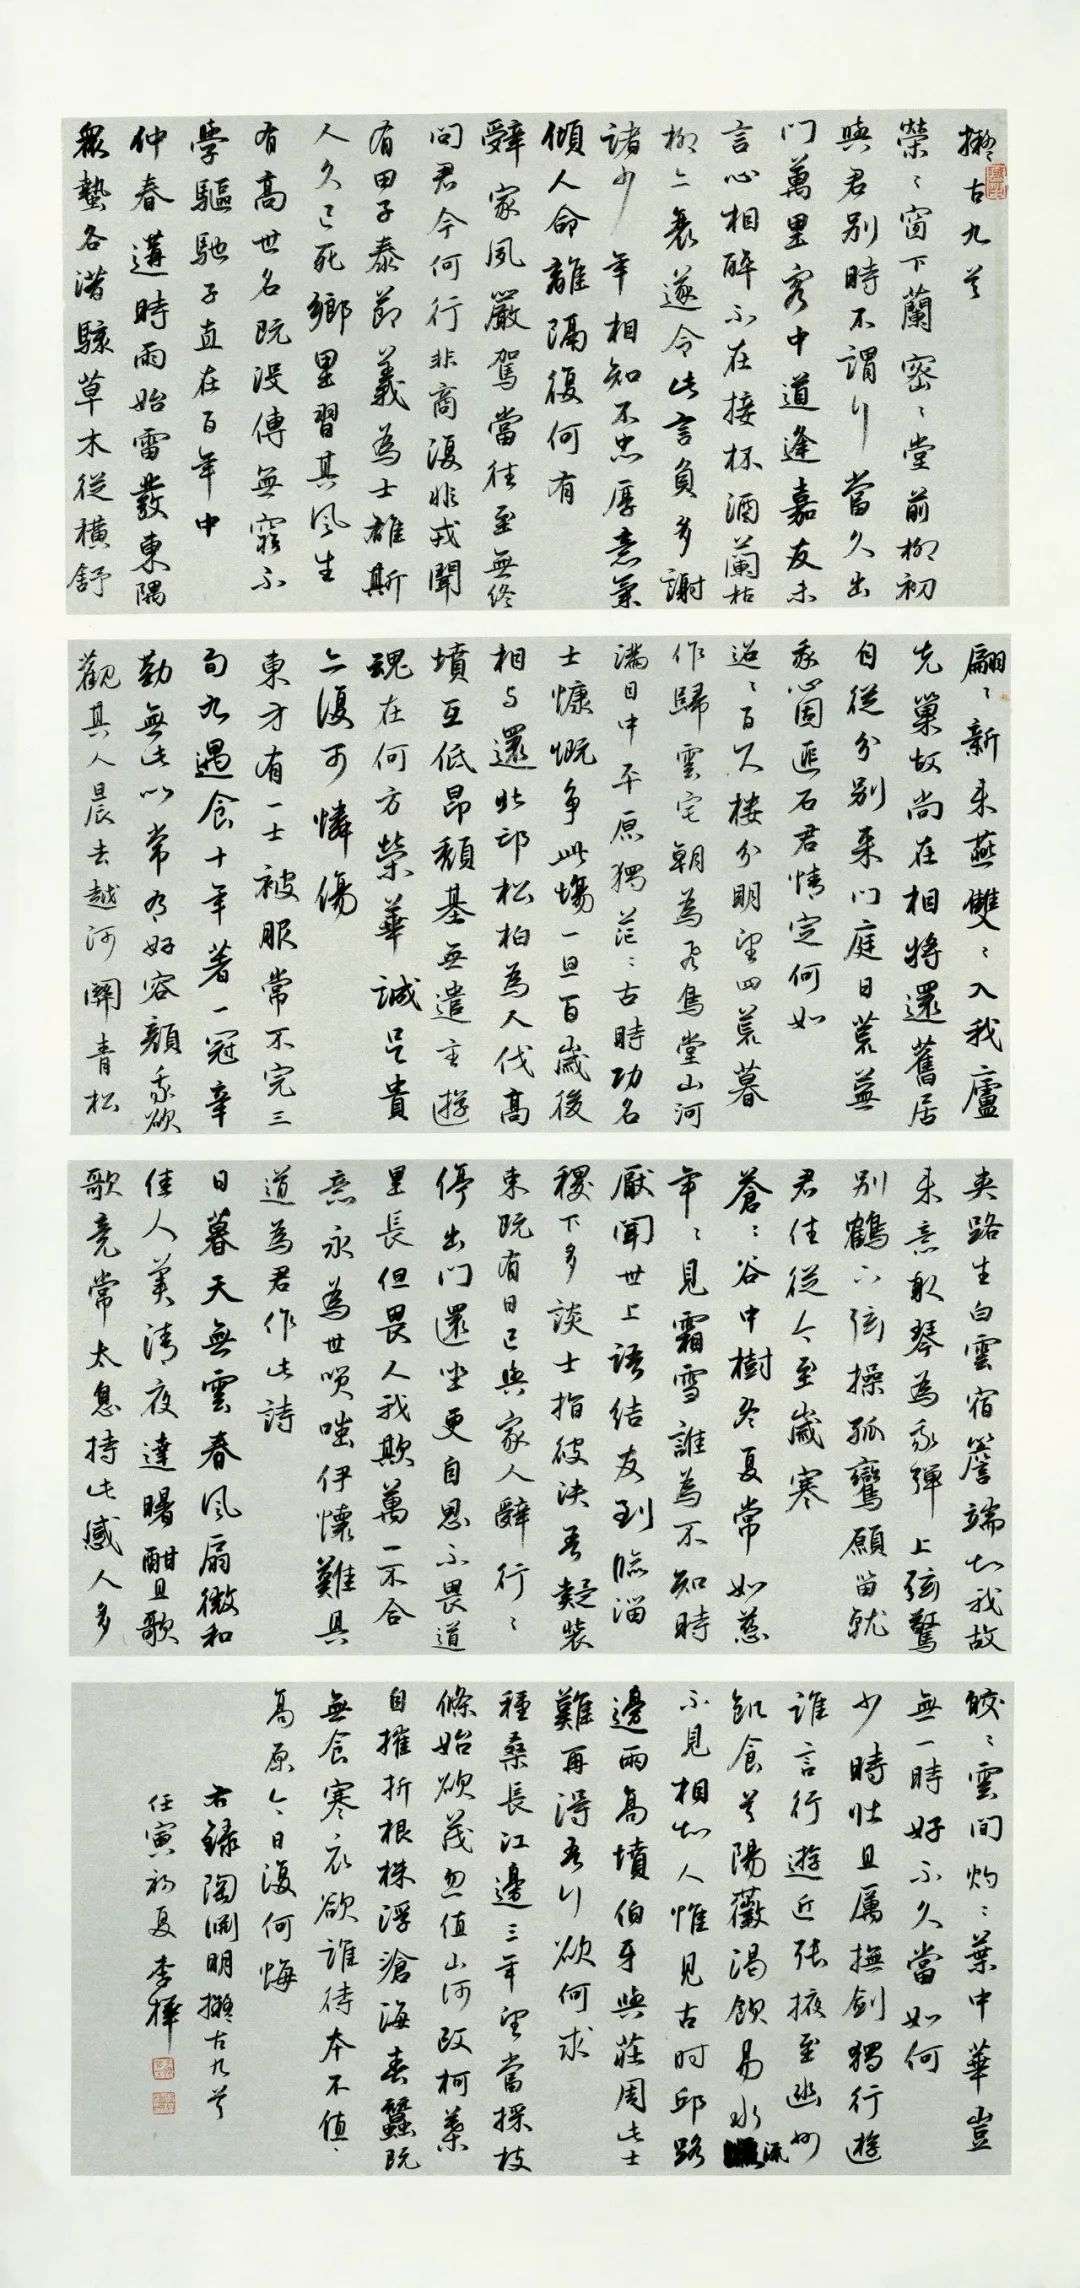 擬古九首
榮〻窗下蘭密〻堂前柳初
與君別時不謂行當久出
門萬里客中道逢嘉友未
言心相醉不在接杯酒蘭枯
柳亦衰遂令此言負多謝
諸少年相知不忠厚意氣
傾人命離隔復何有
辭家夙嚴駕當往至無終
問君今何行非商復非戎聞
有田子泰節義為士雄斯
人久已死鄉里習其風生
有高世名既沒傳無窮不
學驅馳子直在百年中
仲春遘時雨始雷發東隅
眾蟄各潛駭草木從橫舒
翩〻新來燕雙〻入我廬
先巢故尚在相將還舊居
自從分別來門庭日荒蕪
我心固匪石君情定何如
迢〻百尺樓分明望四荒暮
作歸雲宅朝為飛鳥堂山河
滿目中平原獨茫〻古時功名
士慷慨爭此場一旦百歲後
相與還北邙松柏為人伐高
墳互低昂頹基無遺主遊
魂在何方榮華誠足貴
亦復可憐傷
東方有一士被服常不完三
旬九遇食十年著一冠辛
勤無此比常有好容顏我欲
觀其人晨去越河關青松
夾路生白雲宿簷端知我故
來意取琴為我彈上弦驚
別鶴下弦操孤鸞願留就
君住從今至歲寒
蒼〻谷中樹冬夏常如茲
年〻見霜雪誰為不知時
厭聞世上語結友到臨淄
稷下多談士指彼決吾疑裝
束既有日已與家人辭行〻
停出門還坐更自思不畏道
里長但畏人我欺萬一不合
意永為世笑嗤伊懷難具
道為君作此詩
日暮天無雲春風扇微和
佳人美清夜達曙酣且歌
歌竟常太息持此感人多
皎〻雲間灼〻葉中華豈
無一時好不久當如何
少時壯且厲撫劍獨行遊
誰言行遊近張掖至幽州
飢食首陽薇渴飲易水流
不見相知人惟見古時邱路
邊兩高墳伯牙與莊周此士
難再得吾行欲何求
種桑長江邊三年望當採枝
條始欲茂忽值山河改柯葉
自摧折根株浮滄海春蠶既
無食寒衣欲誰待本不值〻
高原今日復何悔
右錄陶淵明擬古九首
任寅初夏李樺